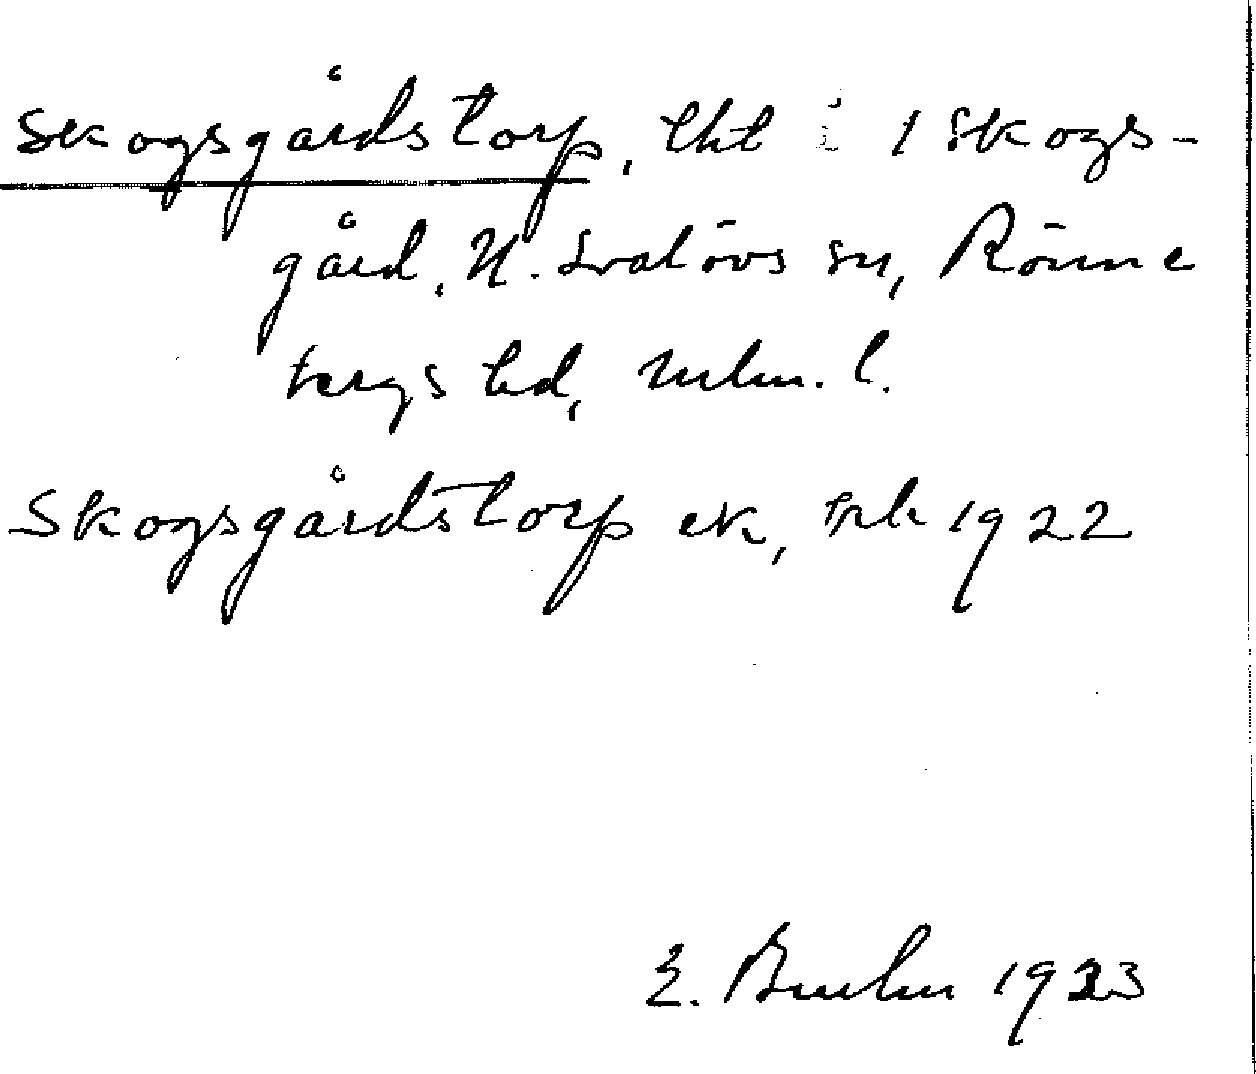 Skogsgårdstorp, lht i 1 Skogs-
gård, N. Svalövs sn, Rönne
bergs hd, Mlm. l.
Skogsgårdstorp ek, 1922
E. Bruhn 1923